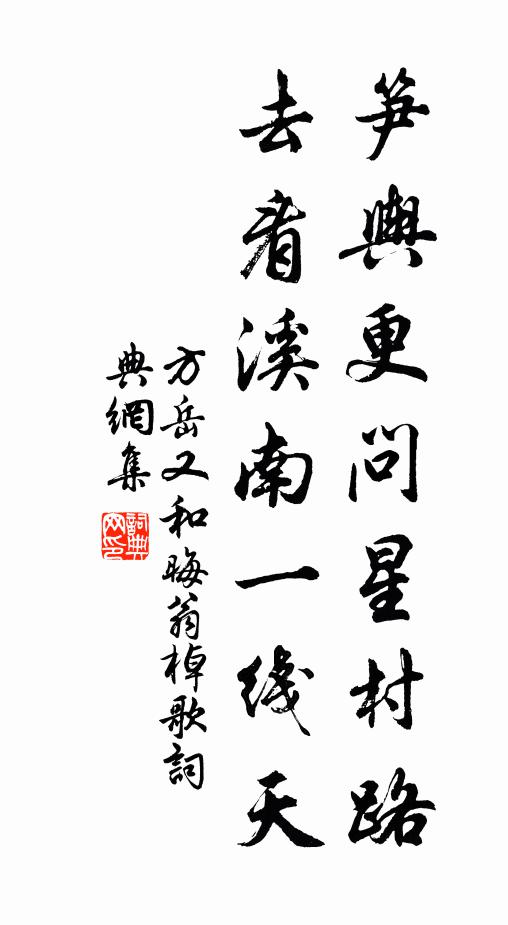 笋輿更問星村路
去看溪南一綫天
方岳又和晦翁棹歌詞
典網集
詞典網印